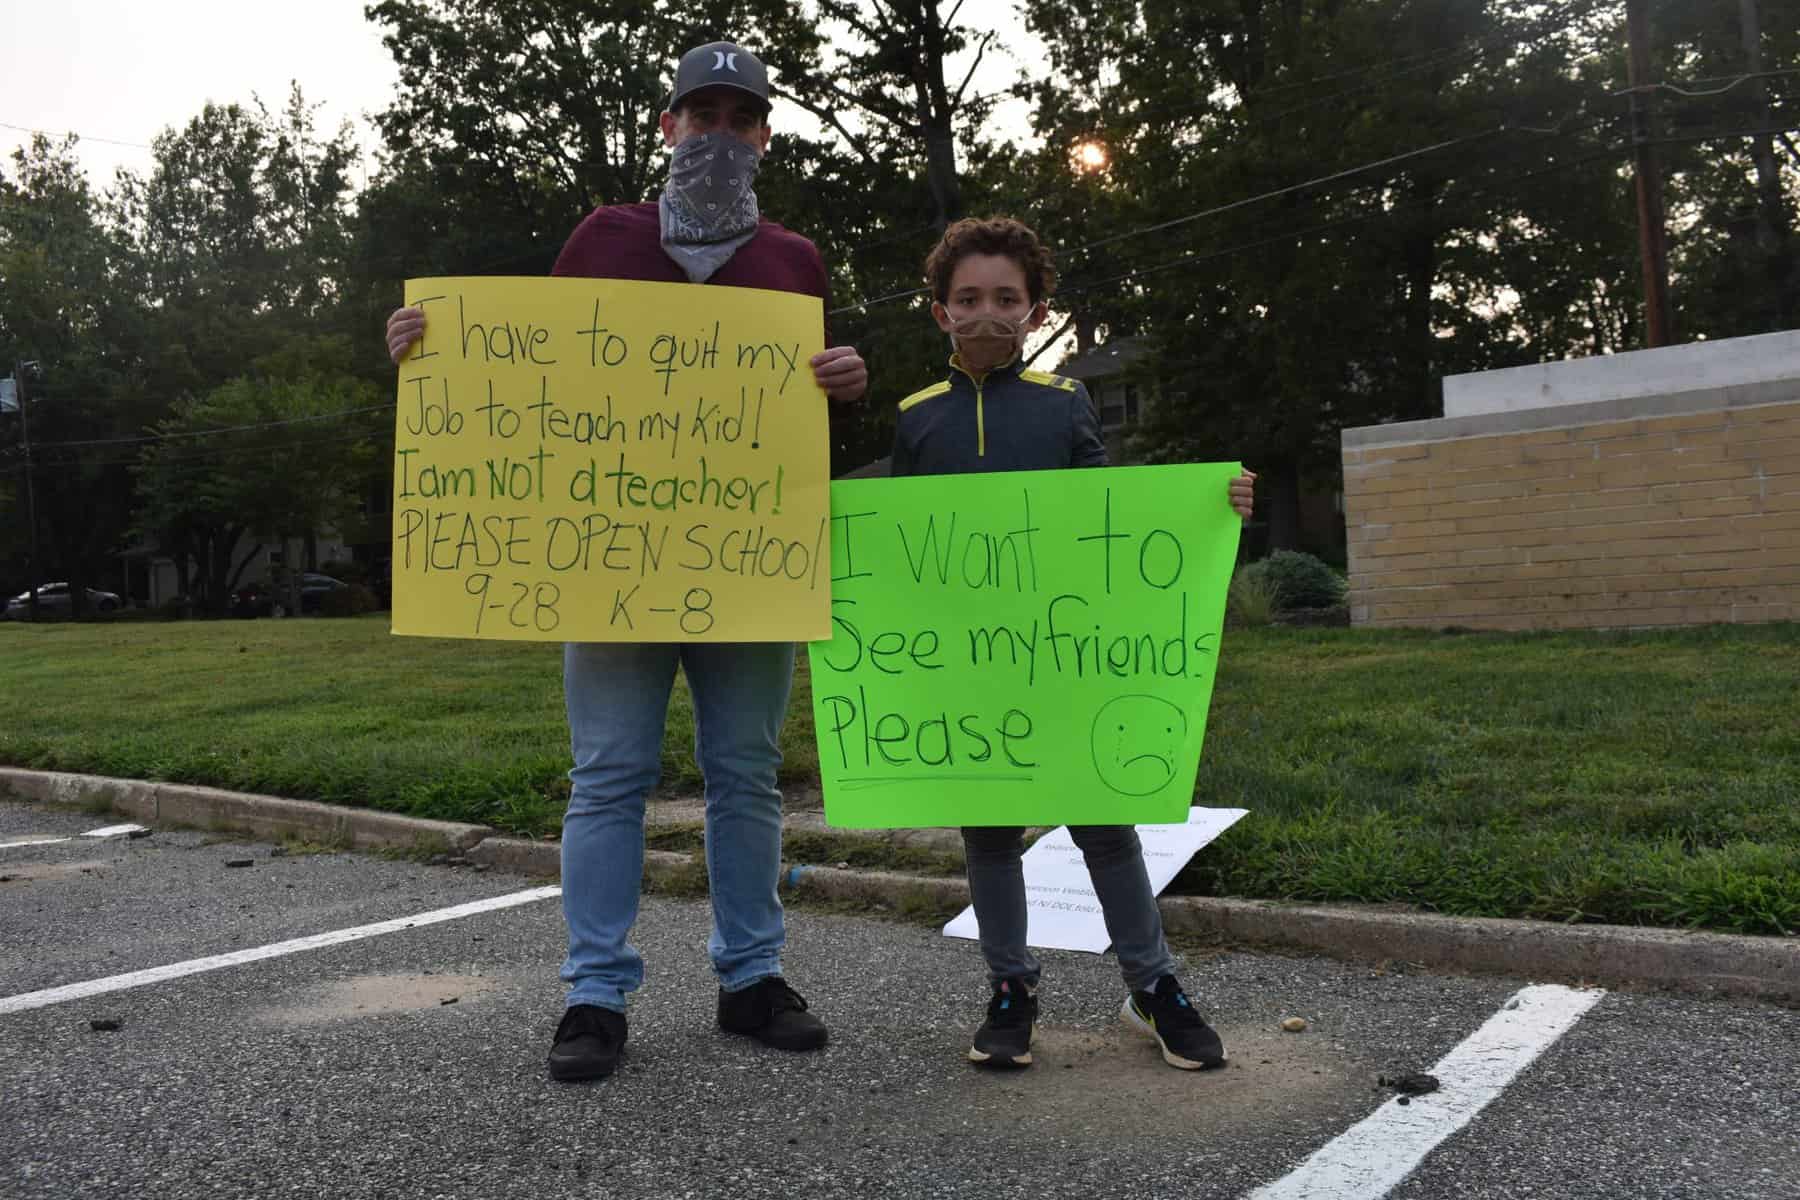 I have to quit my
Job to teach my kid!
I am NOT a teacher!
PLEASE OPEN SCHOOL
9-28 K-8
I want to
See my friends
Please
NJ DOE told